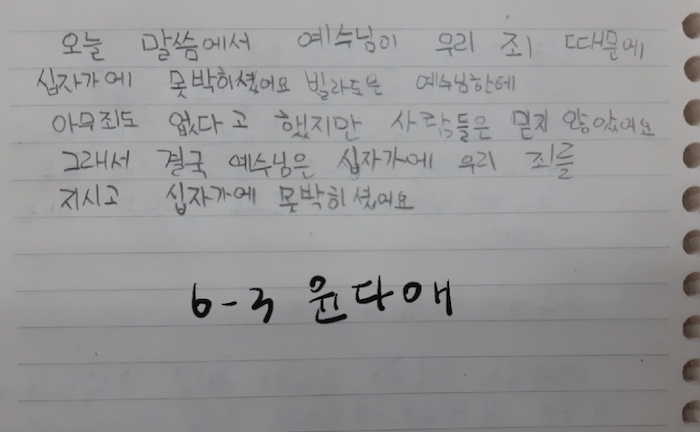 오늘 말씀에서 예수님이 우리 죄 때문에
십자가에 못박히셨어요 빌라도은 예수님한테
아무죄도 없다고 했지만 사람들은 믿지 않았어요
그래서 결국 예수님은 십자가에 우리 죄를
지시고 십자가에 못박히셨어요
6-3 윤다애